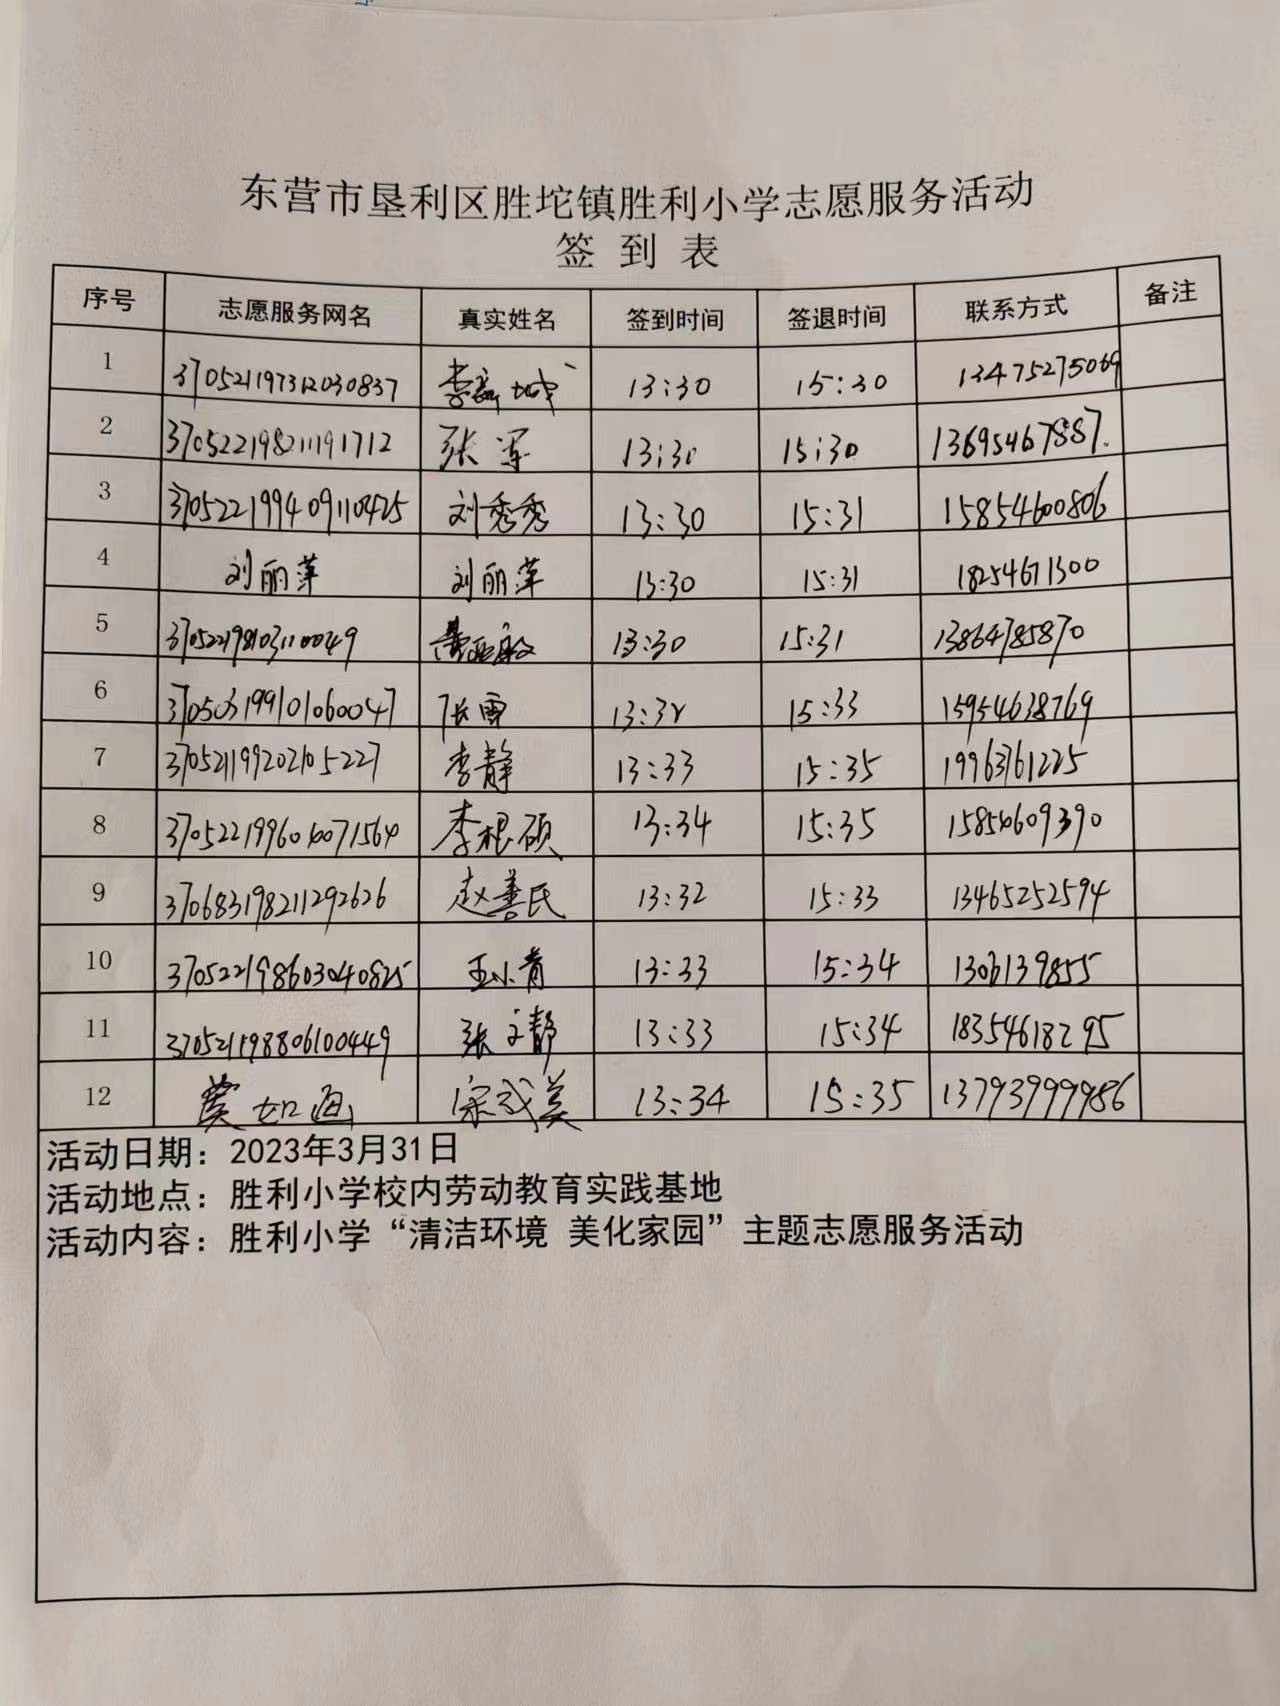 东营市垦利区胜坨镇胜利小学志愿服务活动
签到表
序号 志愿服务网名 真实姓名 签到时间 签退时间 联系方式 备注
1 370521197312030837 13:30 15:30 13475275069
2 370522198211191712 张军 13:30 15:30 13695467887.
3 370522199409110425 刘秀秀 13:30 15:31 15854600806
4 刘丽萍 刘丽萍 13:30 15:31 18254671300
5 370522198103110049 13:30 15:31 13864785870
6 370503199101060047 张雷 13:32 15:33 15954638769
7 370521199202105227 李静 13:33 15:35 19963761225
8 李根硕 13:34 15:35 15854609390
9 370683198211292626 赵善民 13:32 15:33 13465252594
10 370522198603040825 王小青 13:33 15:34
11 370521198806100449 张文静 13:33 15:34 18354618295
12 宋成美 13:34 15:35 13793999986
活动日期：2023年3月31日
活动地点：胜利小学校内劳动教育实践基地
活动内容：胜利小学“清洁环境 美化家园”主题志愿服务活动